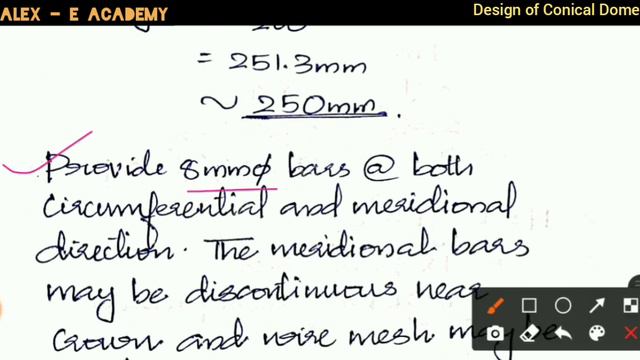 ALEX - E ACADEMY
Design of Conical Dome
= 251.3mm
~ 250mm.
Provide 8mmφ bars @ both
circumferential and meridional
direction. The meridional bars
may be discontinuous near
crown and wire mesh may be